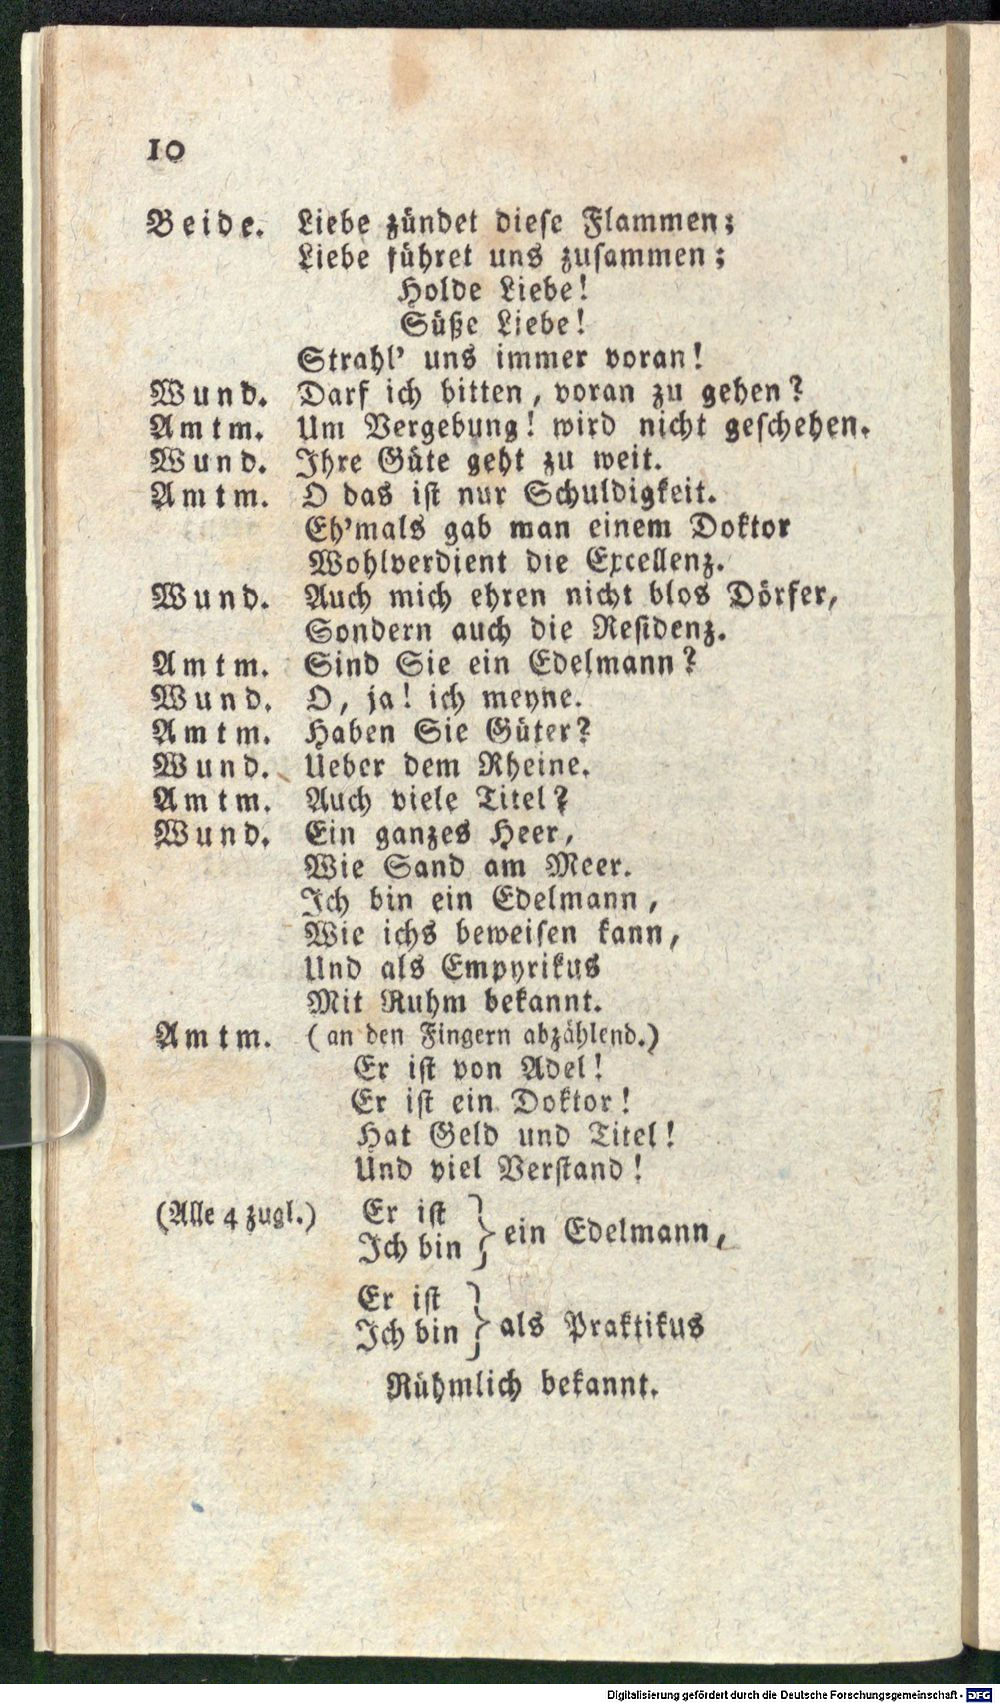 10
Beide. Liebe zündet diese Flammen;
Liebe führet uns zusammen;
Holde Liebe!
Süße Liebe!
Strahl' uns immer voran!
Wund. Darf ich bitten, voran zu gehen?
Amtm. Um Vergebung! wird nicht geschehen.
Wund. Ihre Güte geht zu weit.
Amtm. O das ist nur Schuldigkeit.
Eh'mals gab man einem Doktor
Wohlverdient die Excellenz.
Wund. Auch mich ehren nicht blos Dörfer,
Sondern auch die Residenz.
Amtm. Sind Sie ein Edelmann?
Wund. O, ja! ich meyne.
Amtm. Haben Sie Güter?
Wund. Ueber dem Rheine.
Amtm. Auch viele Titel?
Wund. Ein ganzes Heer,
Wie Sand am Meer.
Ich bin ein Edelmann,
Wie ichs beweisen kann,
Und als Empyrikus
Mit Ruhm bekannt.
Amtm. (an den Fingern abzählend.)
Er ist von Adel!
Er ist ein Doktor!
Hat Geld und Titel!
Und viel Verstand!
(Alle 4 zugl.) Er ist
Ich bin } ein Edelmann,
Er ist
Ich bin } als Praktikus
Rühmlich bekannt.
Digitalisierung gefördert durch die Deutsche Forschungsgemeinschaft - DFG